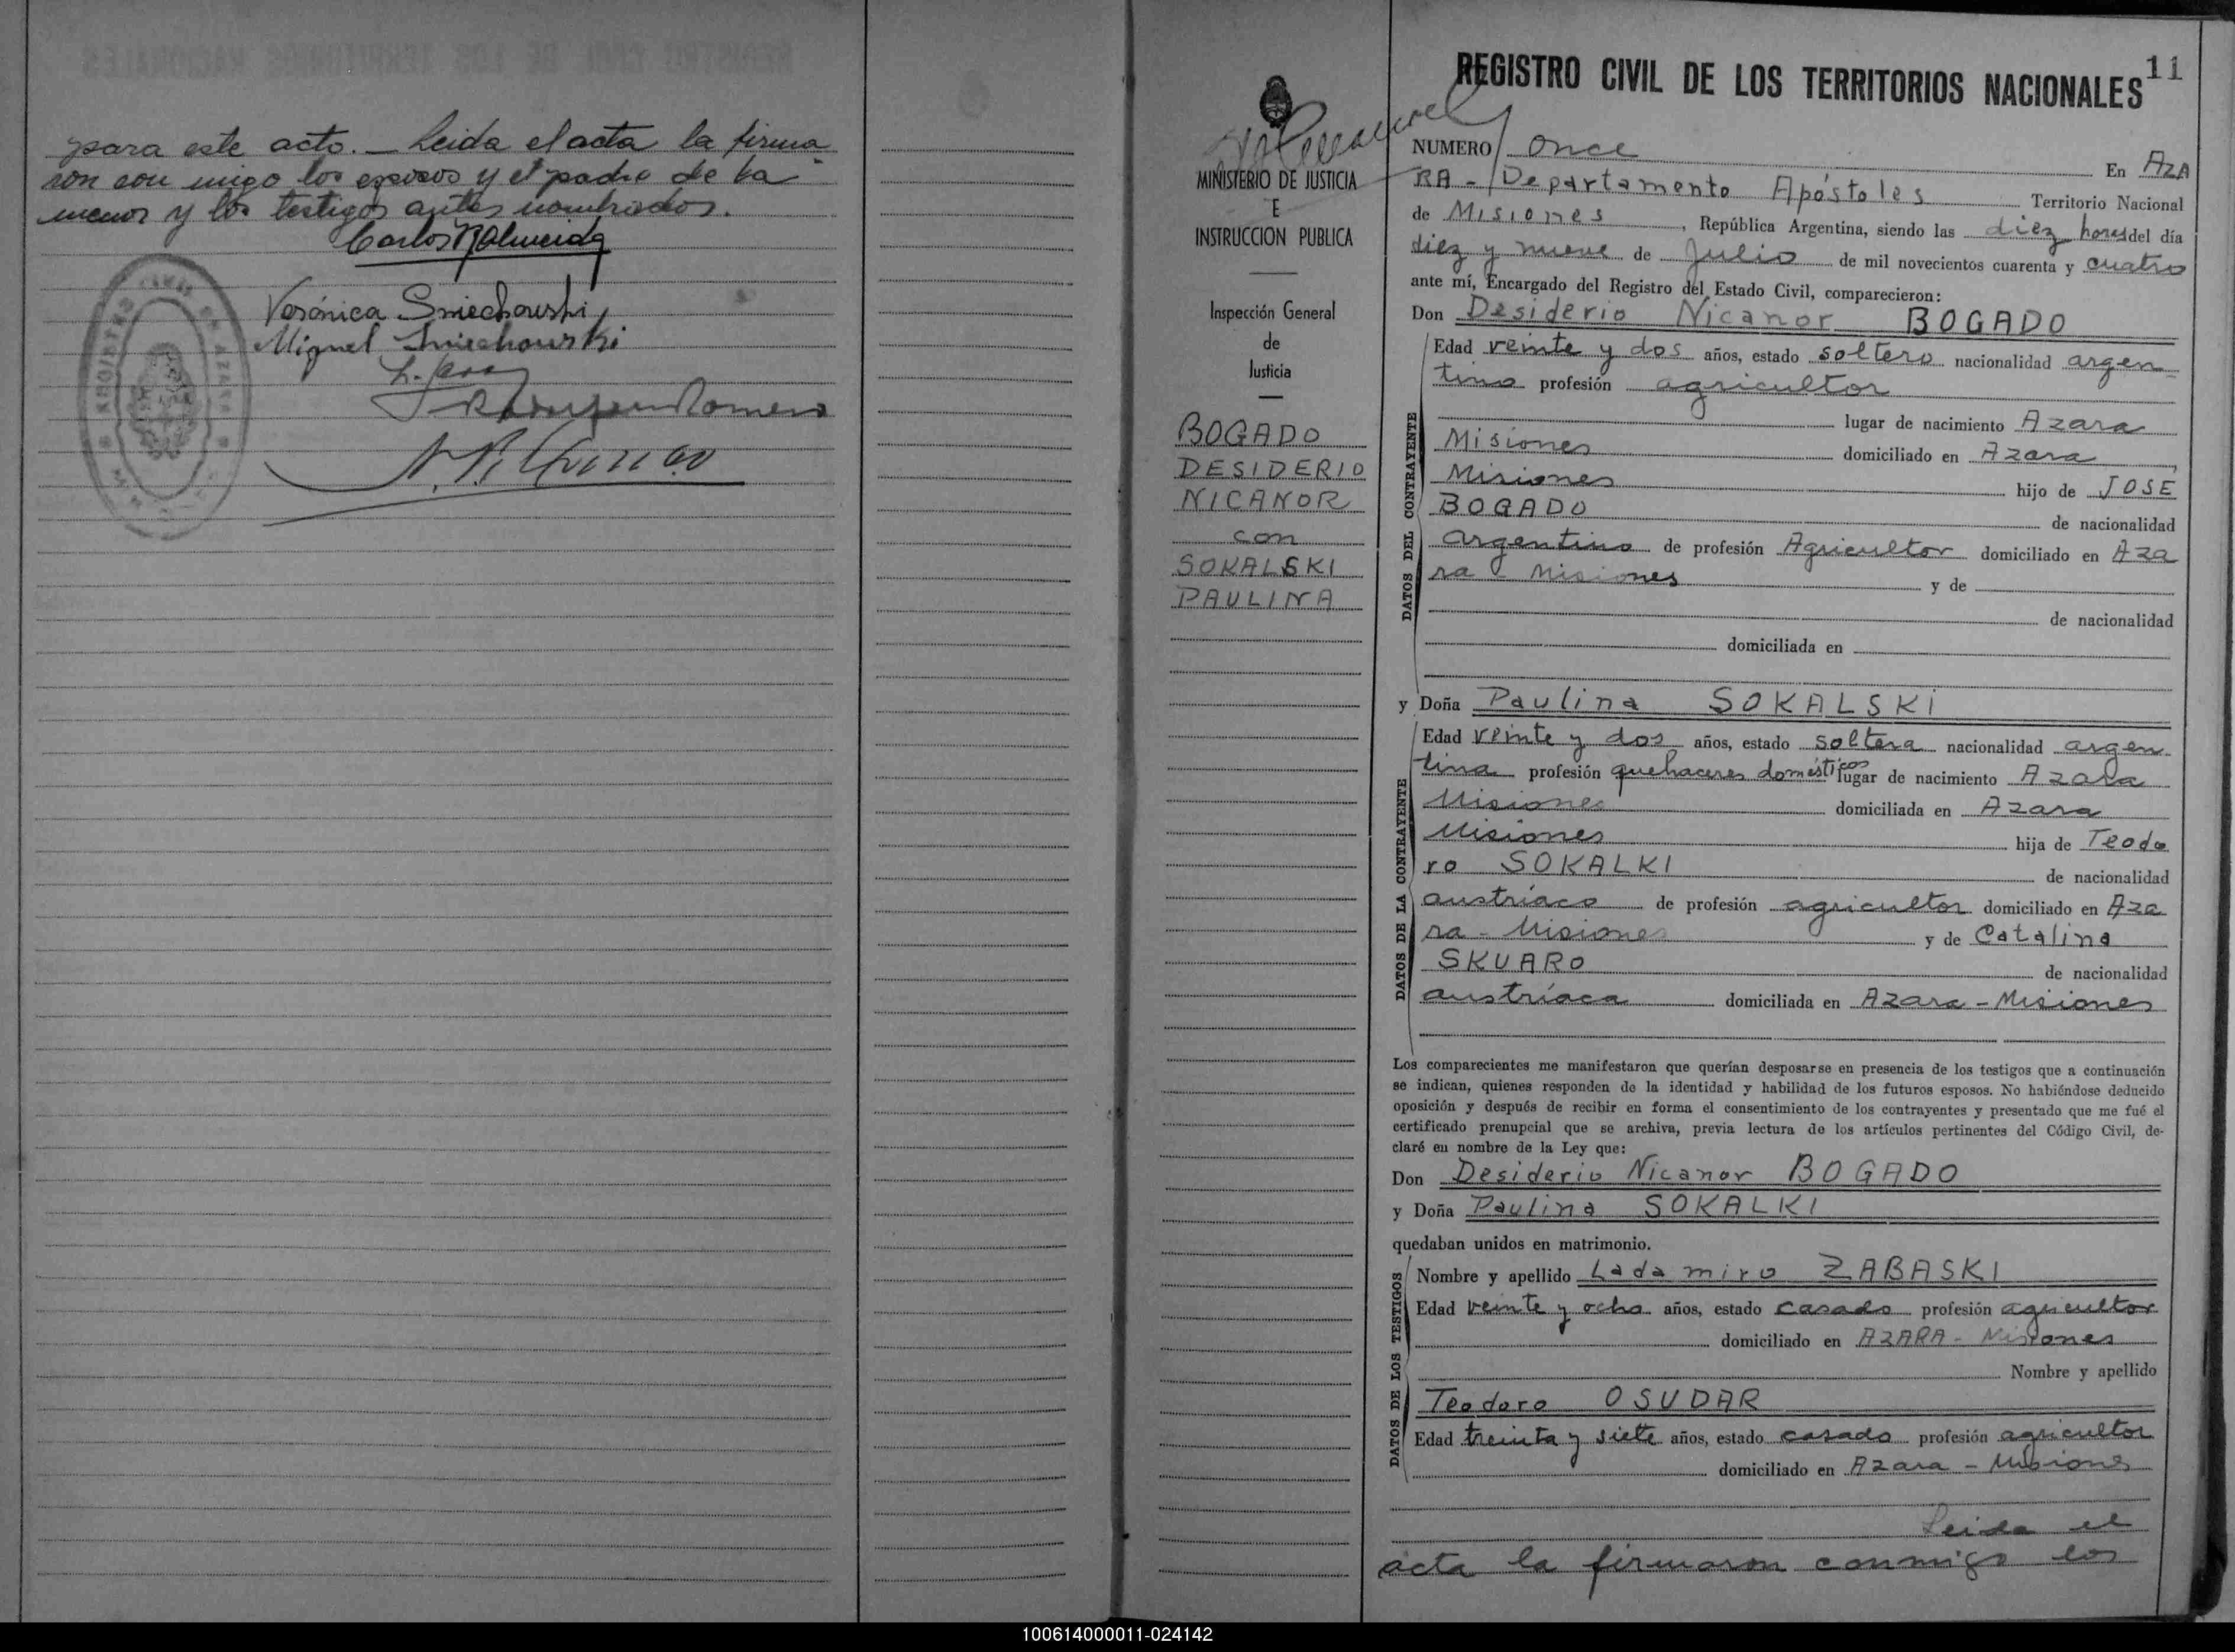 para este acto.- Leida el acta la firma-
ron con migo los esposos y el padre de la
menor y los testigos antes nombrados.
Carlos Almeida
Verónica Sniechowski
Miguel Sniechowski
Romero
REGISTRO CIVIL
AZARA
MINISTERIO DE JUSTICIA
E
INSTRUCCION PUBLICA
Inspección General
de
Justicia
BOGADO
DESIDERIO
NICANOR
con
SOKALSKI
PAULINA
REGISTRO CIVIL DE LOS TERRITORIOS NACIONALES
11
NUMERO Once En AZA
RA - Departamento Apóstoles Territorio Nacional
de Misiones, República Argentina, siendo las diez horas del día
diez y nueve de Julio de mil novecientos cuarenta y cuatro
ante mí, Encargado del Registro del Estado Civil, comparecieron:
Don Desiderio Nicanor BOGADO
DATOS DEL CONTRAYENTE
Edad veinte y dos años, estado soltero nacionalidad argen-
tino profesión agricultor
lugar de nacimiento Azara
Misiones domiciliado en Azara,
Misiones hijo de JOSE
BOGADO de nacionalidad
argentino de profesión Agricultor domiciliado en Aza
ra - Misiones y de
de nacionalidad
domiciliada en
y Doña Paulina SOKALSKI
DATOS DE LA CONTRAYENTE
Edad veinte y dos años, estado soltera nacionalidad argen-
tina profesión quehaceres domésticos lugar de nacimiento Azara
Misiones domiciliada en Azara
Misiones hija de Teodo
ro SOKALKI de nacionalidad
austríaco de profesión agricultor domiciliado en Aza
ra - Misiones y de Catalina
SKUARO de nacionalidad
austríaca domiciliada en Azara - Misiones
Los comparecientes me manifestaron que querían desposarse en presencia de los testigos que a continuación
se indican, quienes responden de la identidad y habilidad de los futuros esposos. No habiéndose deducido
oposición y después de recibir en forma el consentimiento de los contrayentes y presentado que me fué el
certificado prenupcial que se archiva, previa lectura de los artículos pertinentes del Código Civil, de-
claré en nombre de la Ley que:
Don Desiderio Nicanor BOGADO
y Doña Paulina SOKALKI
quedaban unidos en matrimonio.
DATOS DE LOS TESTIGOS
Nombre y apellido Ladamiro ZABASKI
Edad veinte y ocho años, estado casado profesión agricultor
domiciliado en AZARA - Misiones
Nombre y apellido
Teodoro OSUDAR
Edad treinta y siete años, estado casado profesión agricultor
domiciliado en Azara - Misiones
Leida el
acta la firmaron conmigo los
100614000011-024142